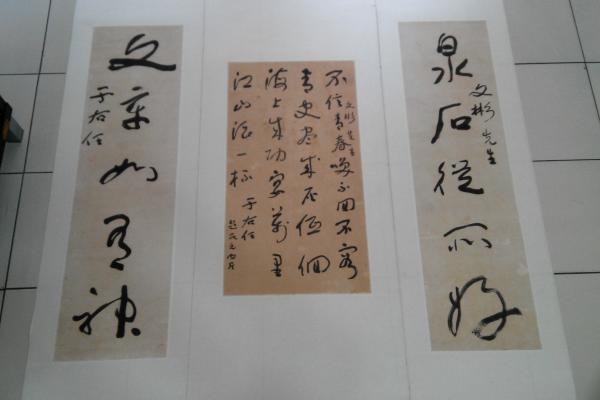 泉石從所好
文彬先生
不信青春喚不回不容
文彬先生
青史盡成灰低佪
海上成功宴萬里
江山酒一杯
于右任
文章如有神
于右任